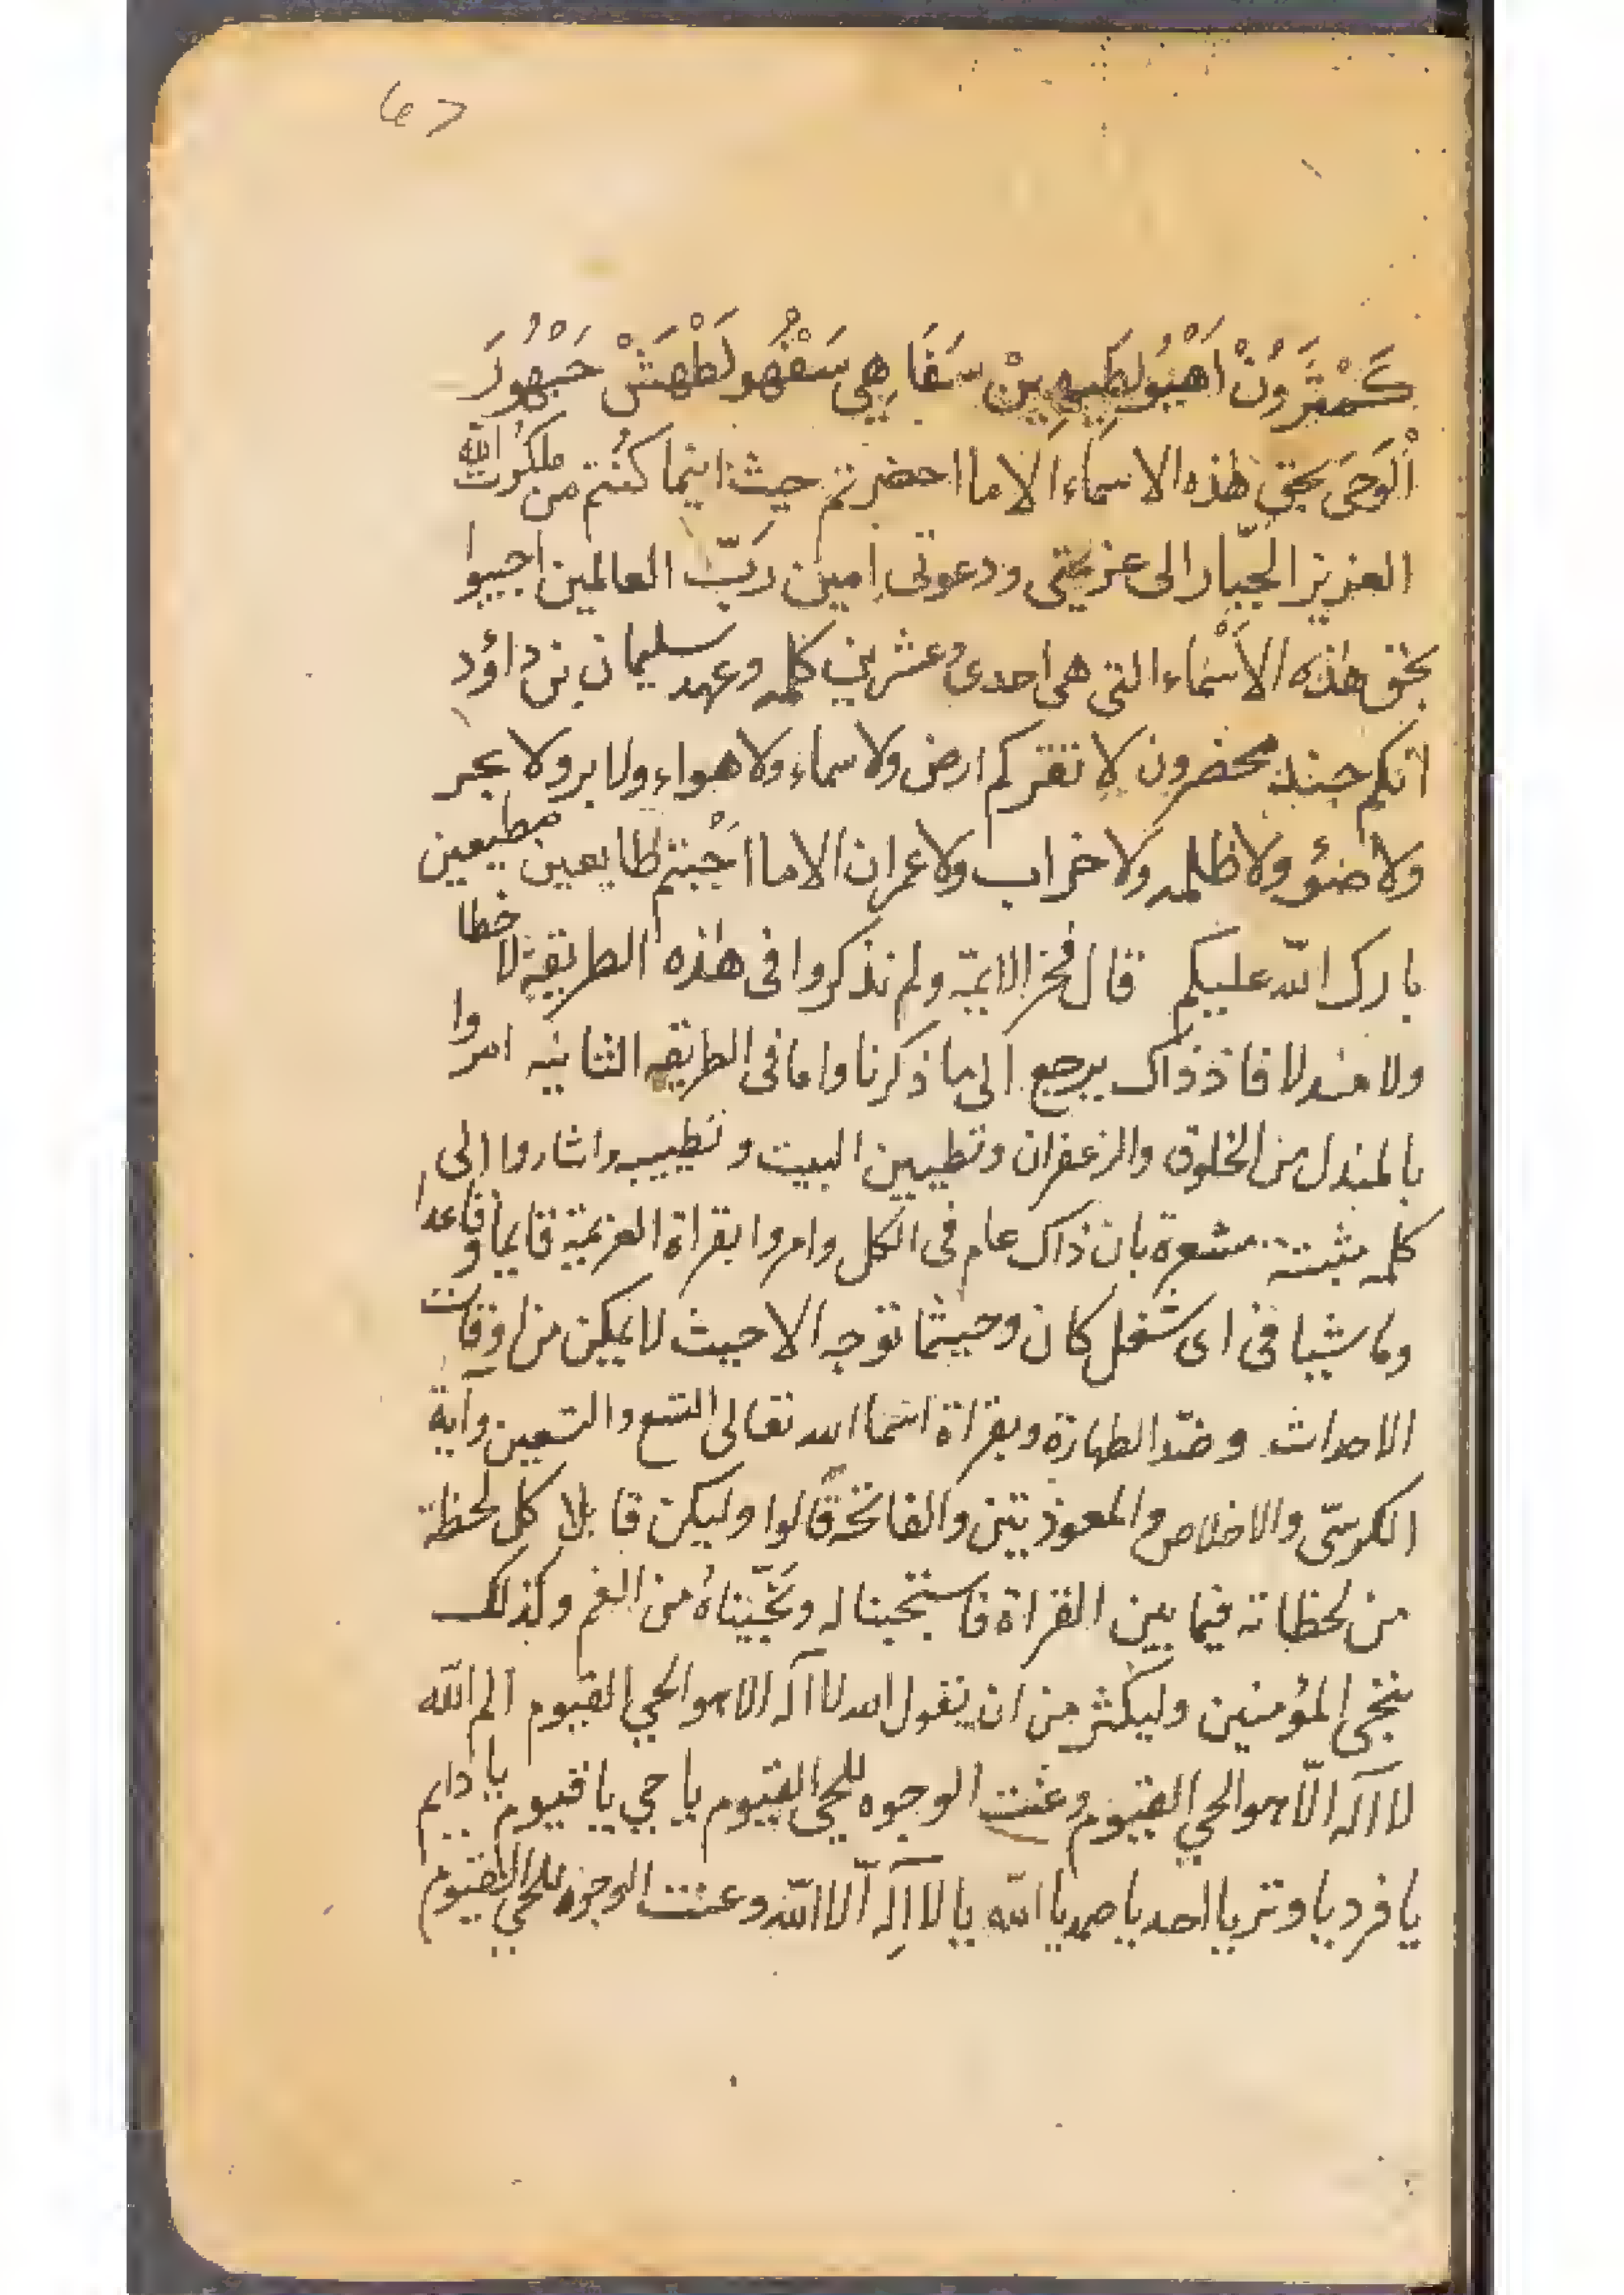 كَمْثَرَوُنْ اَهْيُولَطِيهِينْ سَفَاهِى سَقْفُهُو لَطْهَشْ جَبْهُورَ
اَلْوَحَى بحق هٰذه الاسماء الاما احضرتم حيث اينما كنتم من ملكوت الله
العزيز الجبّار الى عزيمتى ودعوتى امين رَبّ العالمين اجيبوا
بحق هٰذه الاَسْماء التى هى احدى وعشرين كلمه وعهد سليمان بن داؤد
انكم جند محضرون لا تقركم ارض ولا سماء ولا هواء ولا بر ولا بحر
ولا ضئؤ ولا ظلمه ولا خراب ولا عمران الاما اجَبْتم طايعين مطيعين
بارك الله عليكم قال فخر الايمّه ولم نذكروا فى هٰذه الطريقة لا خطا
ولا مندلا فاذ ذاك يرجع الى ما ذكرنا واما فى الطريقه الثانيه امروا
بالمندل من الخلوق والزعفران وتطيين البيت وتطييب واشاروا الى
كلمه مثبتة مشعرة بان ذاك عام فى الكل وامروا بقراة العزيمة قايما وقاعدا
وماشيا فى اى شغل كان وحيثما توجه الا حيث لا يمكن من اوقات
الاحداث وضدّ الطهارة وبقراة اسما الله تعالى التسع والتسعين وآية
الكرسىّ والاخلاص والمعوذيتين والفاتحة قالوا وليكن قايلا كل لحظة
من لحظاته فيما بين القراة فاستجبنا له ونجّيناهُ من الغم وكذلك
ننجى المؤمنين وليكثر من ان يقول الله لا آله الا هو الحي القيوم الم الله
لا آله الّا هو الحي القيوم وعنت الوجوه للحي القيوم يا حي يا قيوم يا دايم
يا فرد يا وتر يا احد يا صمد يا الله يا لا آلِه الّا الله وعنت الوجوه للحي القيوم